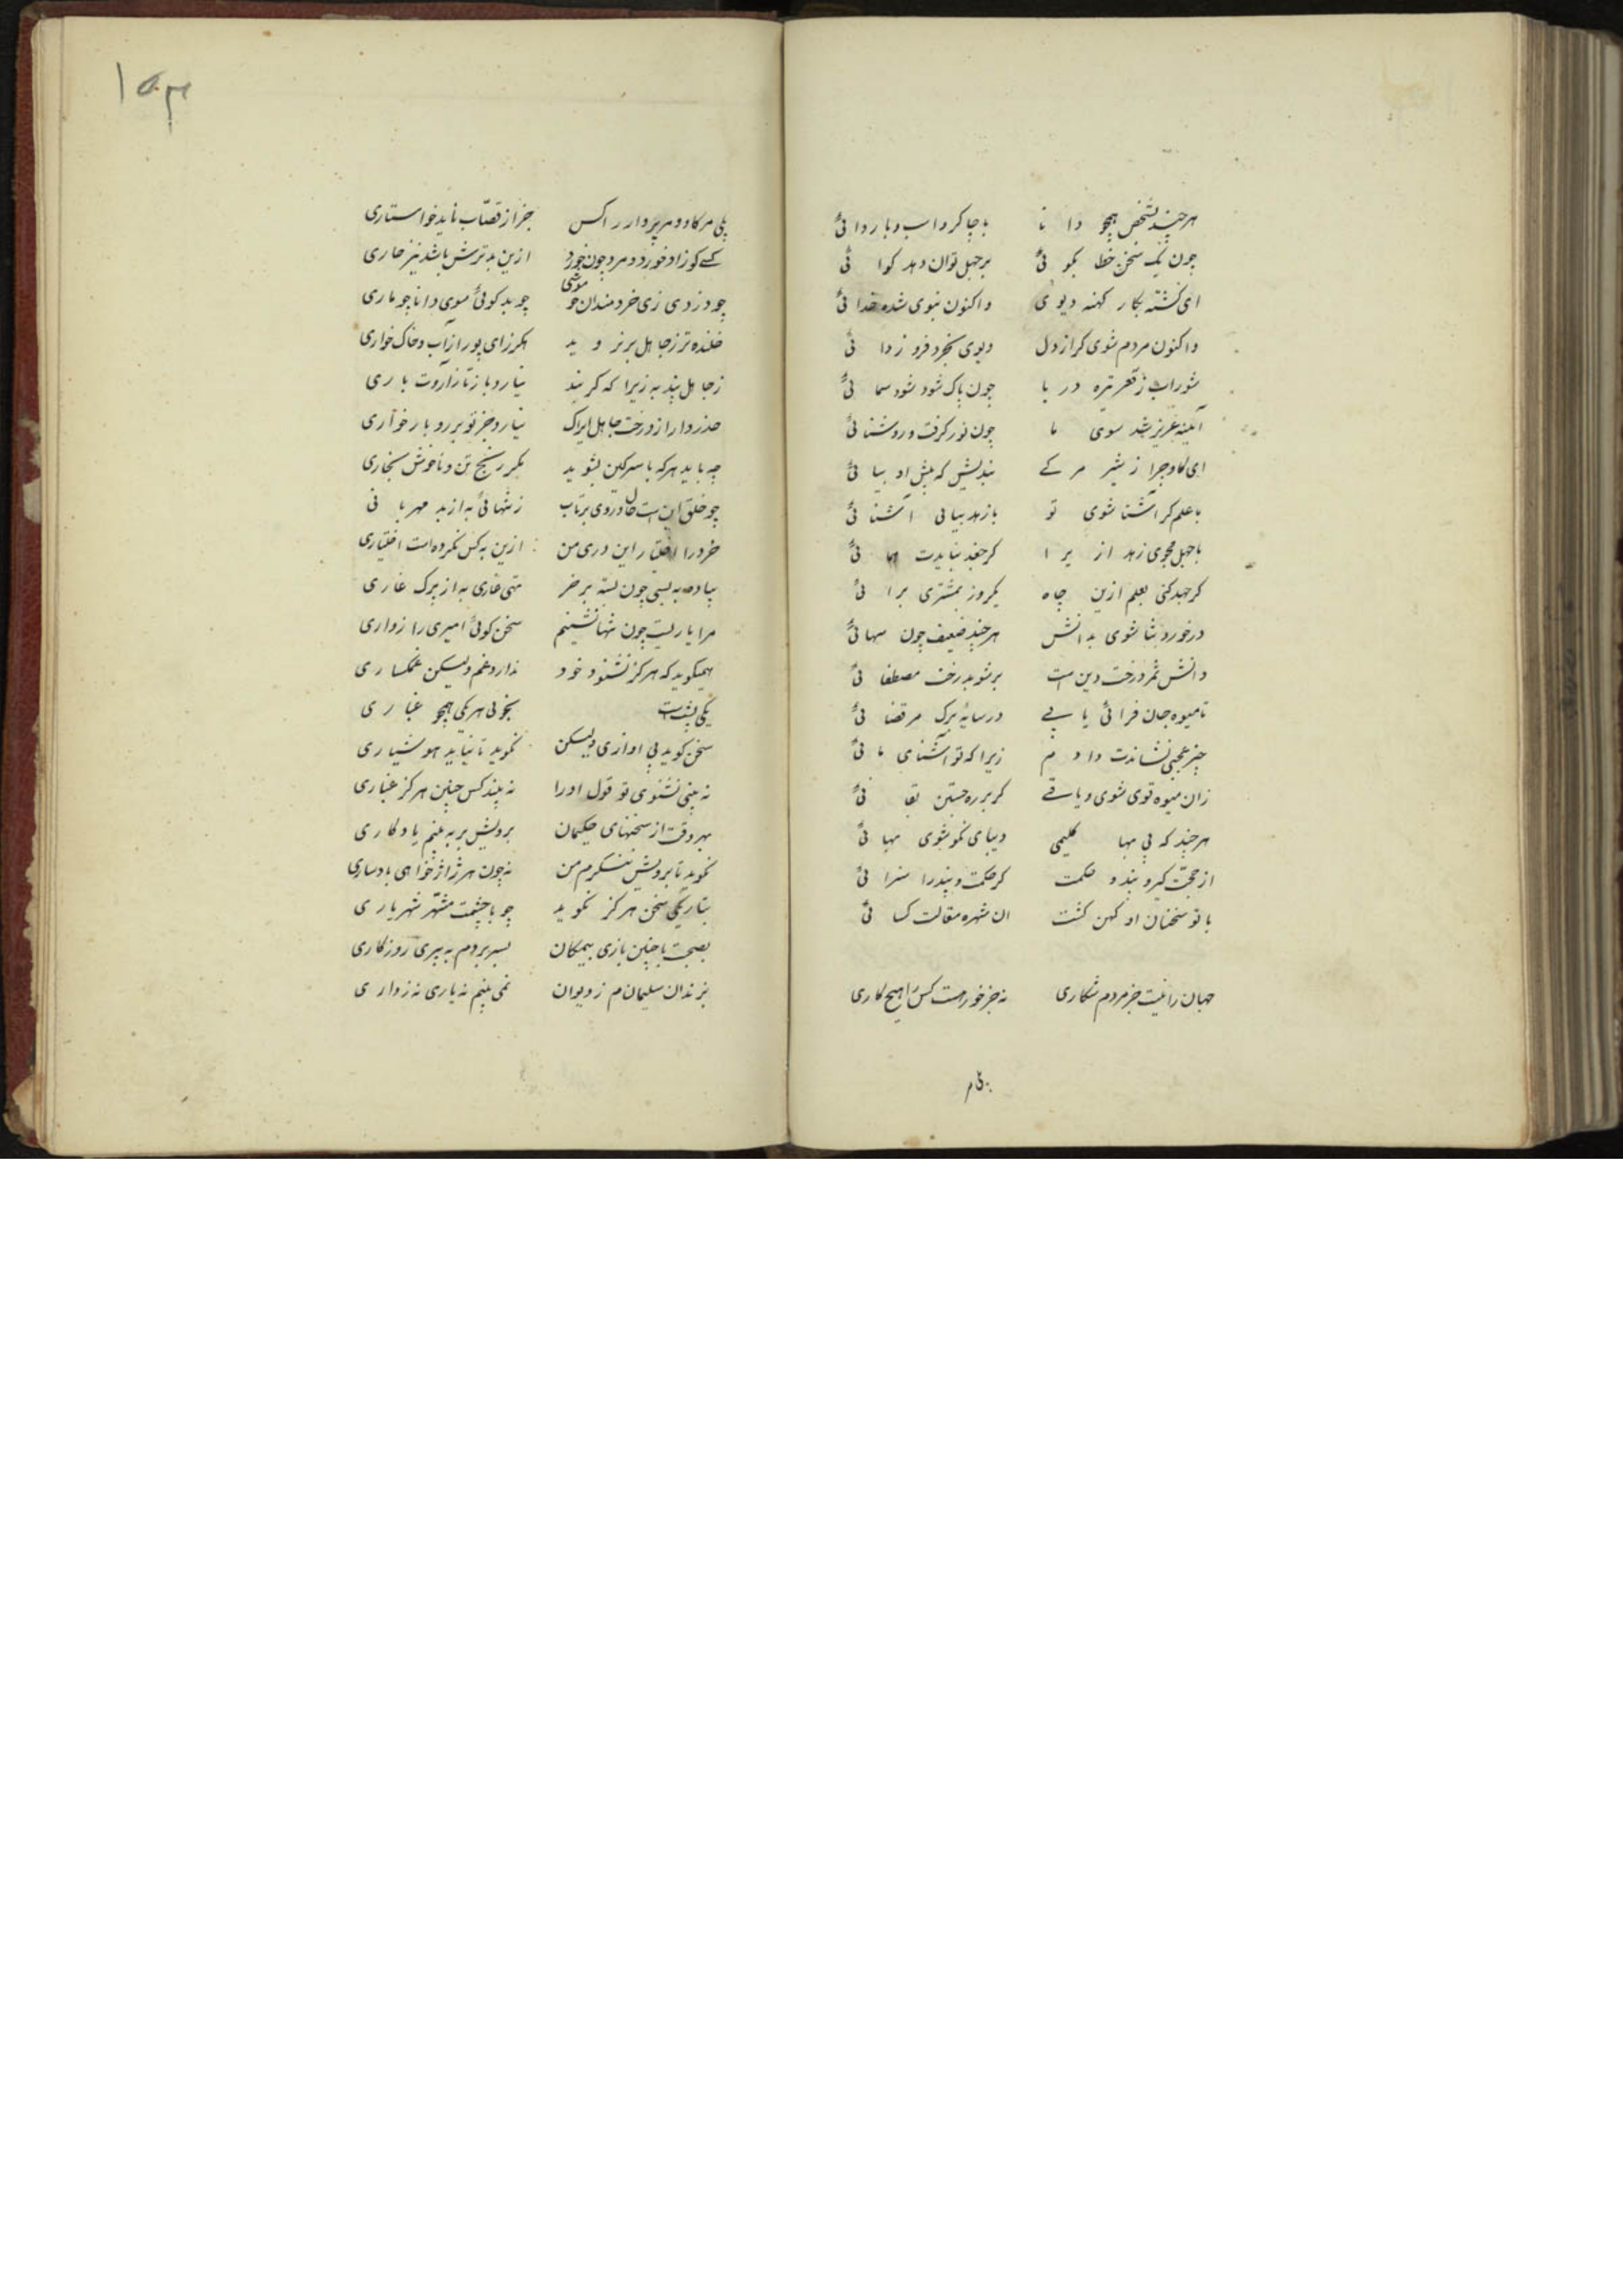 هرچند بشخص همچو دانا با چاکر و اسب و با ردائی
چون یک سخن خطا بگوئی بر جهل توان دهد کوائی
ای کشته بکار کهنه دیوی واکنون بنوی شده خدائی
واکنون مردم شوی کر از دل دیوی بخرد فرو زدائی
شوراب ز قعر تیره دریا چون پاک شود شود سمائی
آئینه عزیز شد سوی ما چون نور کرفت و روشنائی
ای کاو چرا ز شیر مر کے بندیش که پیش او بیائی
با علم کر آشنا شوی تو با زهد بیابی آشنائی
با جهل مجوی زهد ازیرا کز جغد نیایدت همائی
کر جهد کنی بعلم ازین چاه یکروز بمشتری برائی
درخورد ثنا شوی بدانش هرچند ضعیف چون سهائی
دانش ثمر درخت دین است برشو بدرخت مصطفائی
تا میوه جان فزائی یابے در سایۀ برک مرتضائی
چیز عجبی نشانت دادم زیرا که تو آشنای مائی
زان میوه قوی شوی و باقے کر بر ره جستن بقائی
هرچند که بی بها کلیمی دیبای نکو شوی بهائی
از حجت کیر و پند و حکمت کر حکمت و پند را سزائی
با تو سخنان او کهن کشت ان شهره مقالت کسائی
جهان را نیست جز مردم شکاری نه جز خور هست کس را هیچ کاری
۱۵۳
بلی مر کاو و مر پروار را کس جز از قصاب ناید خواستاری
کسے کو زاد و خورد و مرد چون خر ازین بدترش باشد نیز خاری
چو دزدی زی خردمندان چو موشی چو بد کوئی سوی دانا چو ماری
خلنده‌تر ز جاهل بر نروید هکرز ای پور از آب و خاک خواری
ز جاهل بید به زیرا که کر بید نیارد بار نازاردت باری
حذر دار از درخت جاهل ایراک نیارد جز تو بر رو بار خواری
چه باید هر که با سرکین بشوید مکر رنج تن و ناخوش بخاری
چو خلق این است و حال رو تو بر تاب ز تنهائی به از بد مهربانی
خرد را اختیار این در ی من ازین به کس نکرده است اختیاری
پیاده به بسی چون بسته بر خر تهی غاری به از پرک غاری
مرا یاریست چون تنها نشینم سخن کوئی امیری رازداری
همیکوید که هرکز نشنود خود ندارد غم ولیکن غمکساری
یکی پشت است بخوبی هر یکی همچو غباری
سخن کوید بی آوازی ولیکن نکوید تا نیابد هوشیاری
نه بینی نشنوی تو قول او را نه بیند کس چنین هرکز غباری
بهر وقت از سخنهای حکیمان برویش بر به بینم یادکاری
نکوید تا برویش ننکرم من نه چون هر ژاژخواهی بادساری
بتاریکی سخن هرکز نکوید چو با چشمت مشهر شهریاری
بصحبت با چنین یاری بیمکان بسر بردم به پیری روزکاری
بزندان سلیمانم ز دیوان نمی بینم نه یاری نه زواری